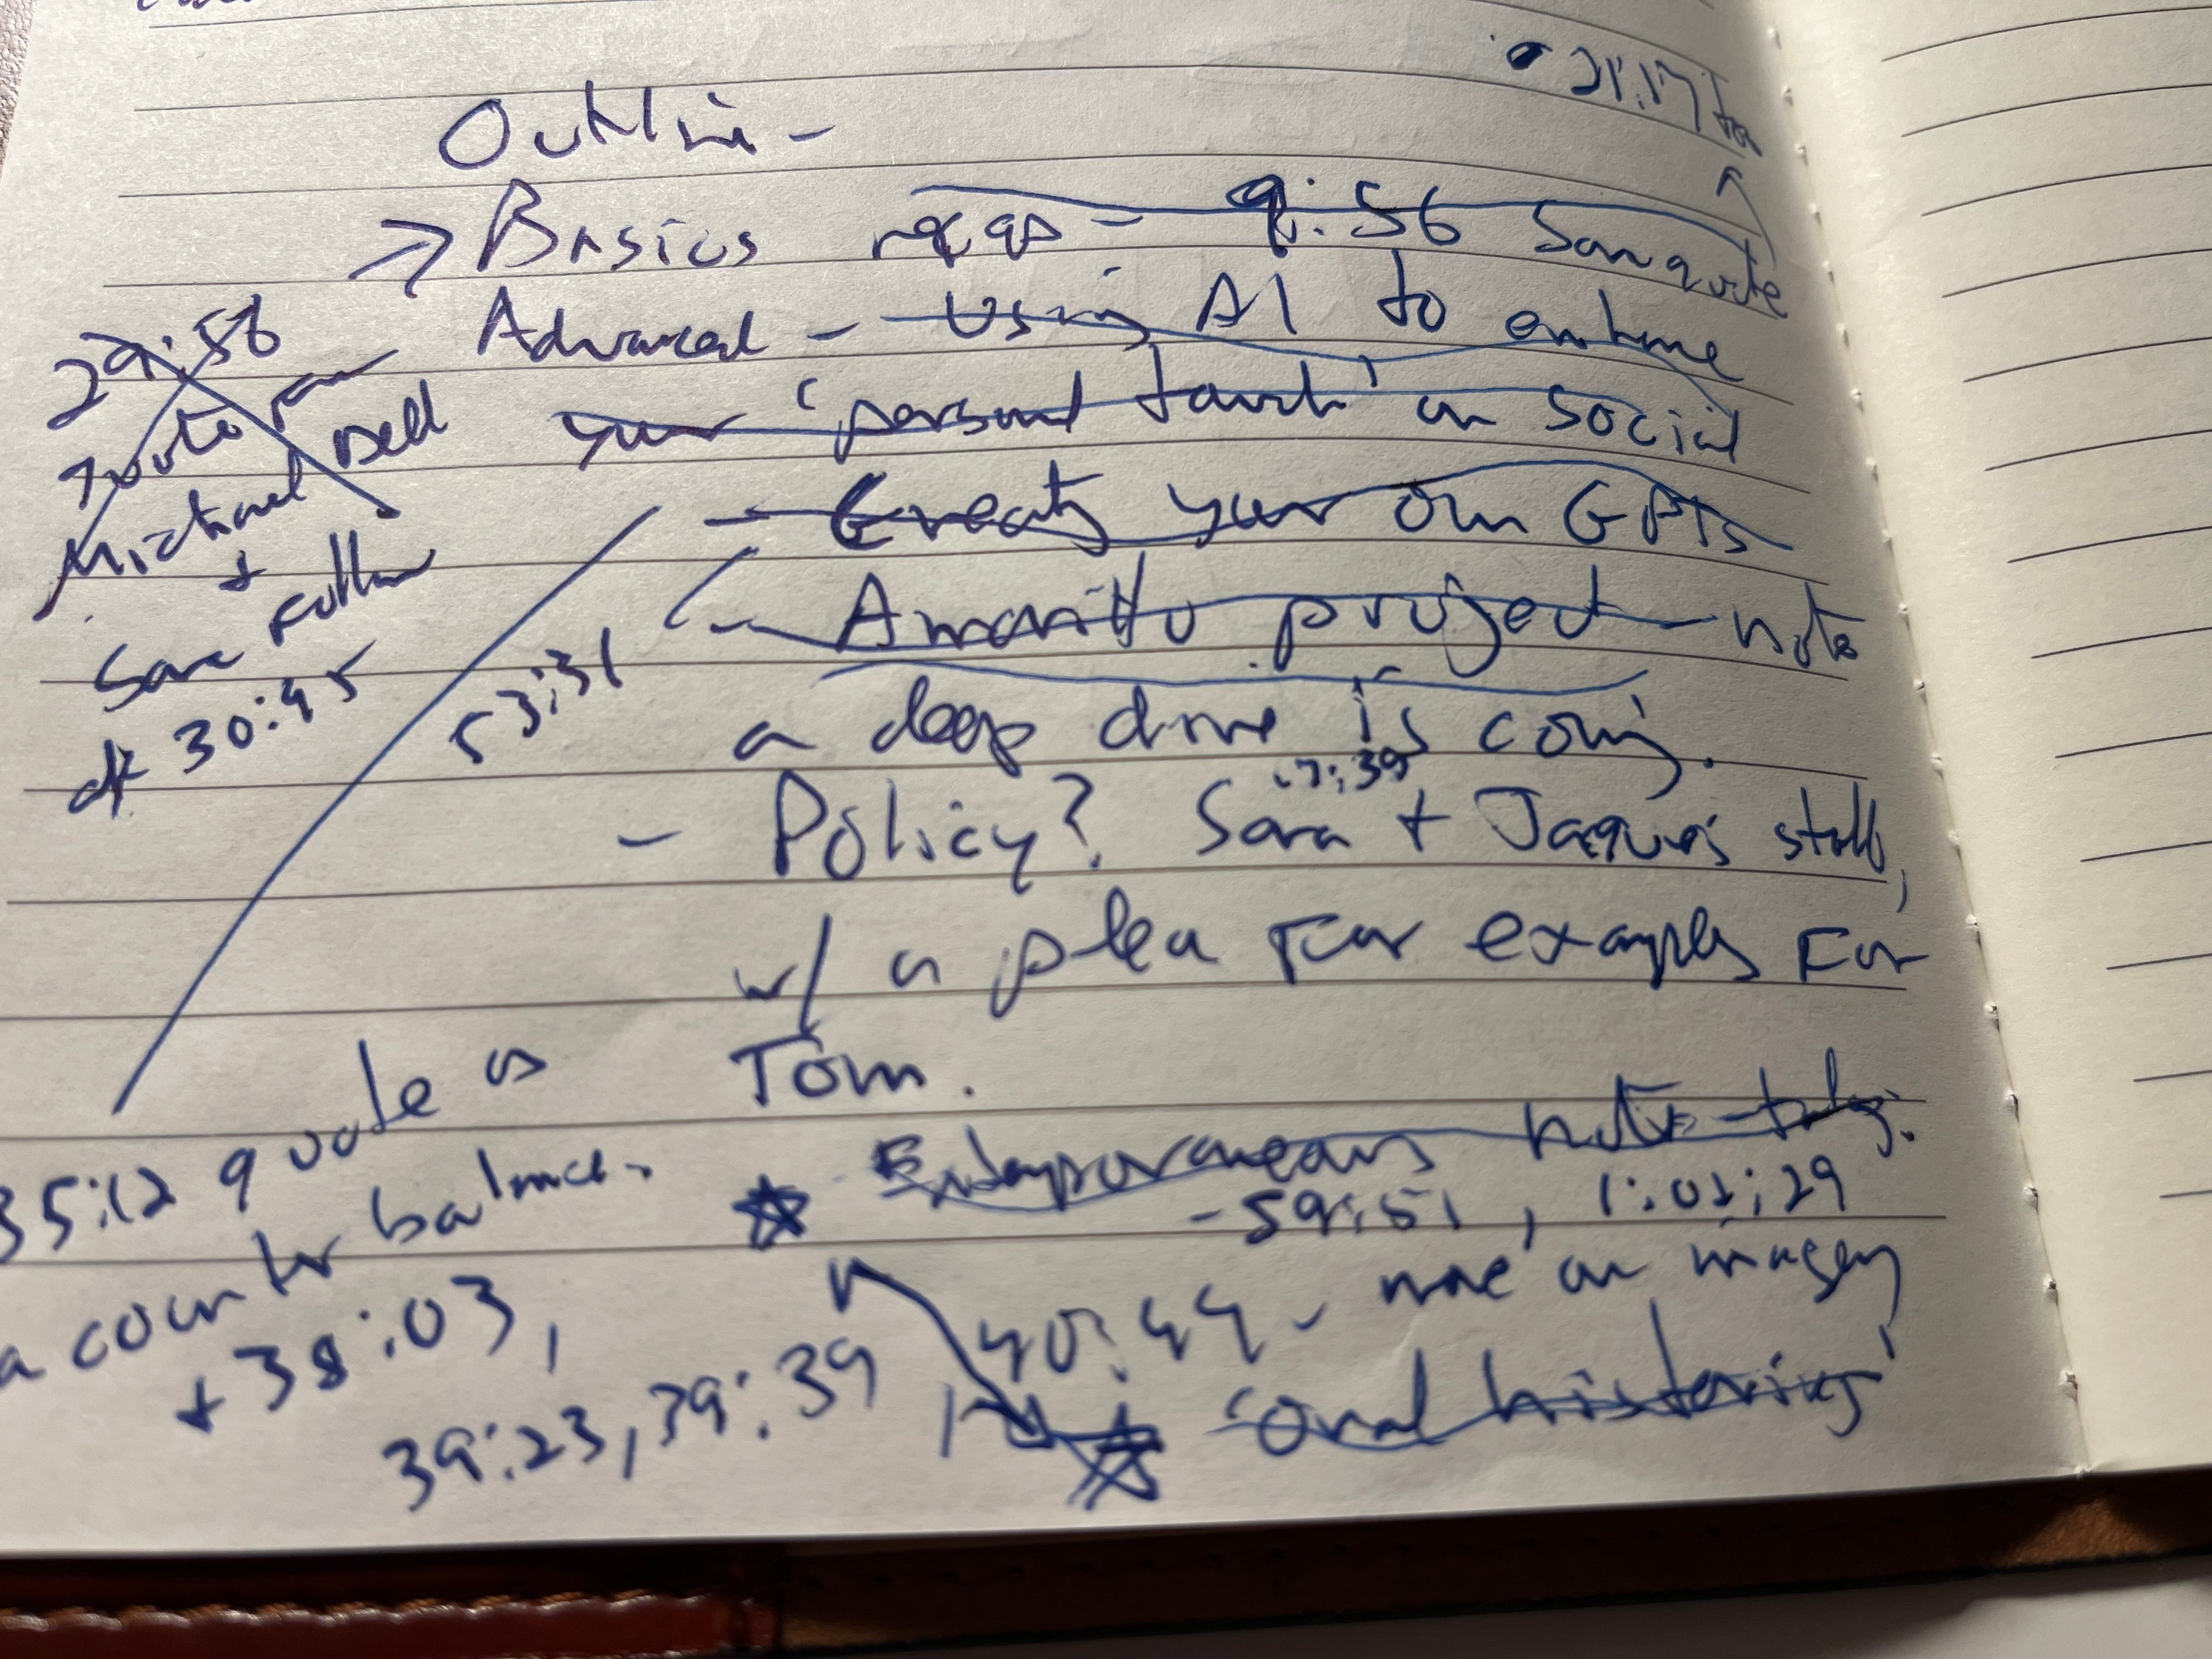 21:17 for
Outline -
Basics recaps - 9:56 Sara quote
Advanced - Using AI to enhance
your 'personal touch' on social
29:56
quote from
Michael Dell
+
Sara follow
at 30:45
- Create your own GPTs
53:31
- Amarillo project - note
a deep dive is coming.
17:39
- Policy? Sara + Jaques's stuff,
w/ a plea for examples for
Tom.
35:12 quote as
a counter balance.
+ 38:03,
39:23, 39:39
Extemporaneous note-taking.
- 59:51, 1:02:29
40:44 - more on imagery
'oral histories'